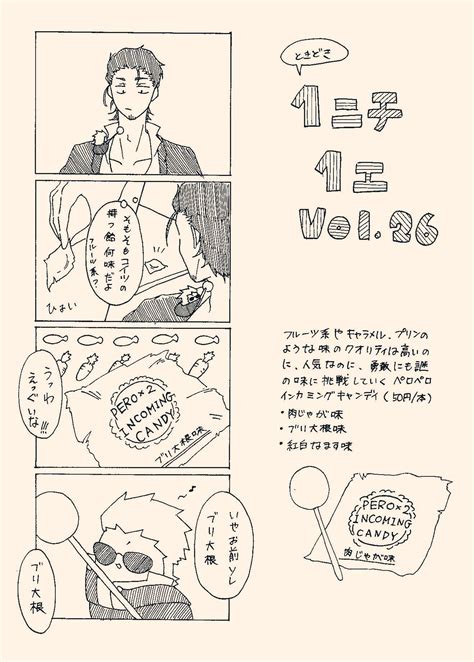 ときどき
1ニチ
1エ
Vol.26
そもそもコイツの
持つ飴何味だよ
フルーツ系?
ひょい
うっわ
えっぐいな!!!
PERO×2
INCOMING
CANDY
ブリ大根味
いやお前ソレ
ブリ大根
ブリ大根
フルーツ系やキャラメル、プリンの
ような味のクオリティは高いの
に、人気なのに、勇敢にも謎
の味に挑戦していくペロペロ
インカミングキャンディ(50円/本)
・肉じゃが味
・ブリ大根味
・紅白なます味
PERO×2
INCOMING
CANDY
肉じゃが味